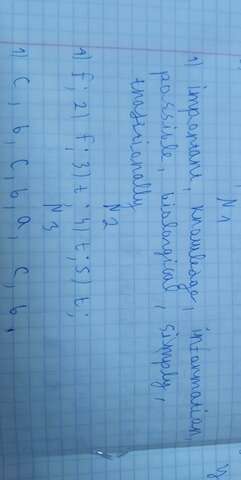 N1
1) important, knowledge, information
possible, biological, simply,
traditionally
N2
1) f; 2) f; 3) t; 4) t; 5) t;
N3
1) c, b, c, b, a, c, b,